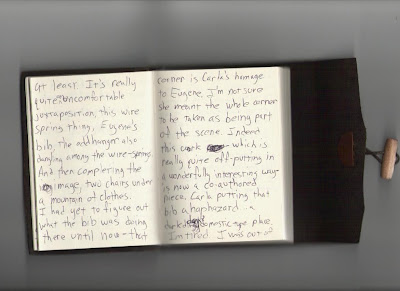 at least. It's really
quite uncomfortable
juxtaposition, this wire
spring thing, Eugene's
bib, the odd hanger also
dangling among the wire-springs.
And then completing the
image, two chairs under
a mountain of clothes.
I had yet to figure out
what the bib was doing
there until now - that
corner is Carla's homage
to Eugene. I'm not sure
she meant the whole corner
to be taken as being part
of the scene. Indeed
this work - which is
really quite off-putting in
a wonderfully interesting way -
is now a co-authored
piece, Carla putting that
bib a haphazard
domestic-type place.
I'm tired. I was out of